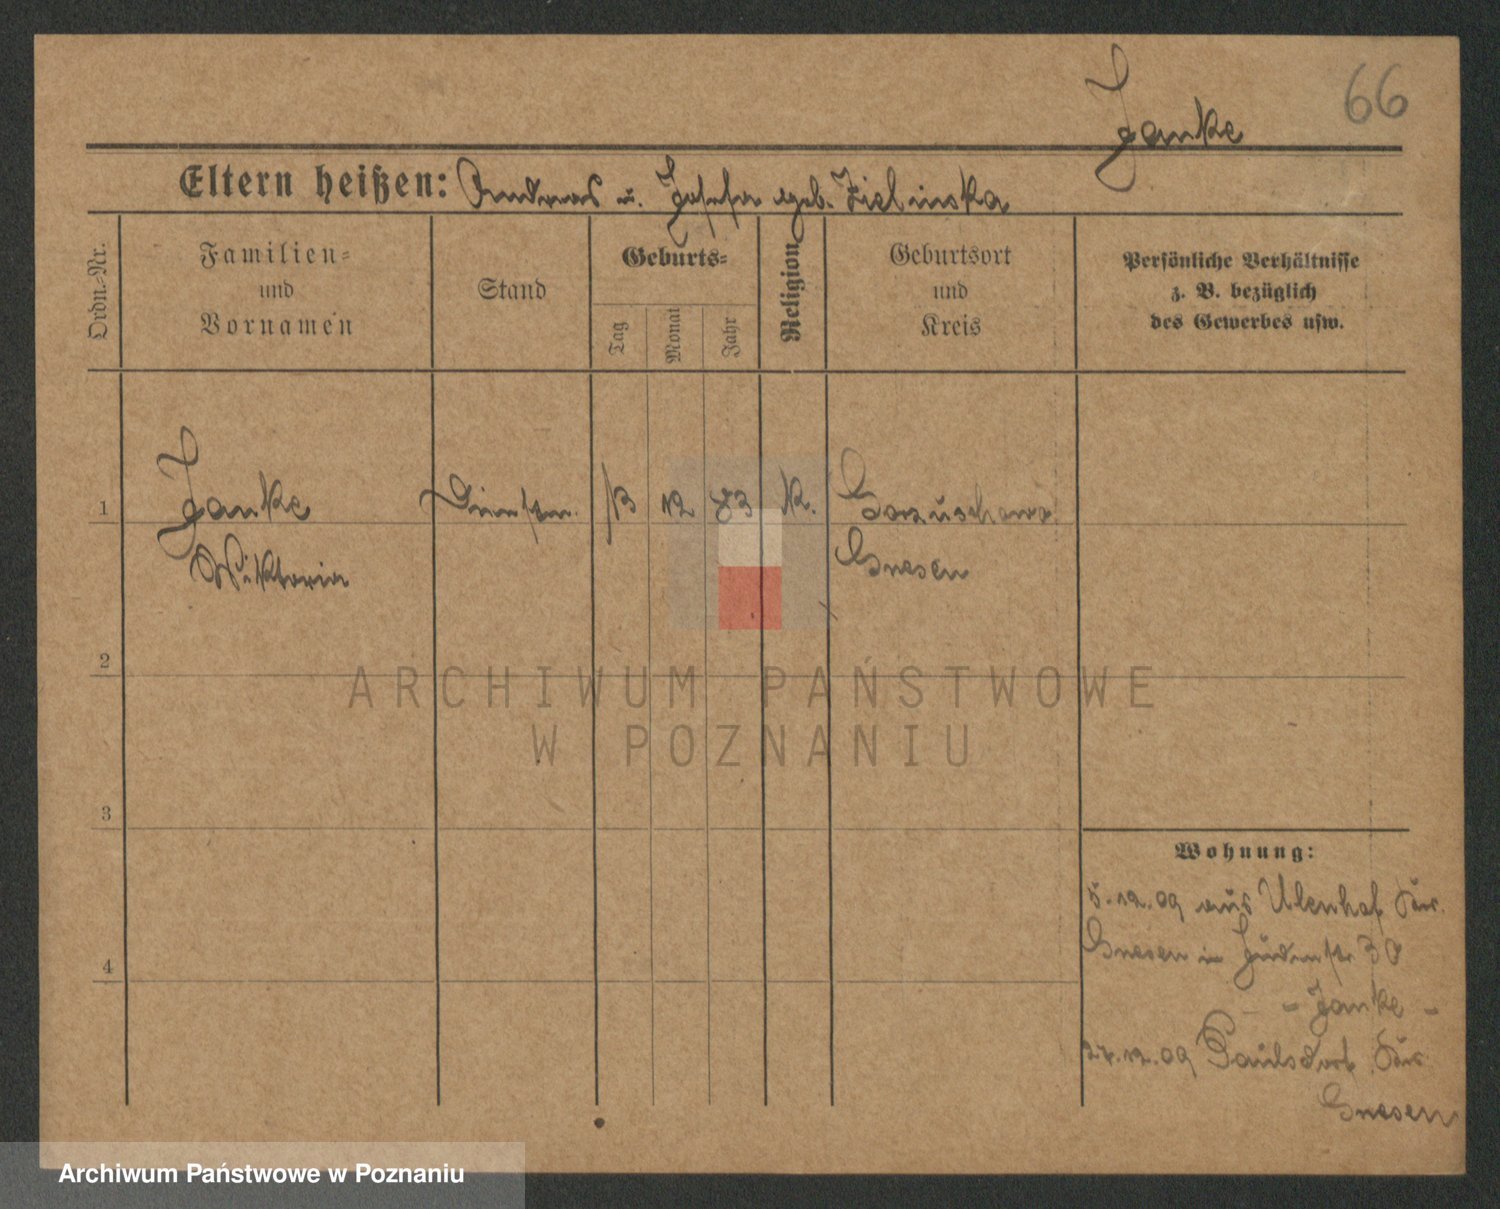 66
Janke
Eltern heißen: Andreas u. Josefa geb. Zielinska
Ordn.-Nr.
Familien-
und
Vornamen
Stand
Geburts-
Tag
Monat
Jahr
Religion
Geburtsort
und
Kreis
Persönliche Verhältnisse
z. B. bezüglich
des Gewerbes usw.
1
Janke
Wiktoria
13 12 83 K.
Gnesen
2
ARCHIWUM PAŃSTWOWE
W POZNANIU
3
4
Wohnung:
5.12.09 aus Ulenhof Kr.
Gnesen in Judenstr 30
- Janke -
12.09 Paulsdorf Kr.
Gnesen
Archiwum Państwowe w Poznaniu